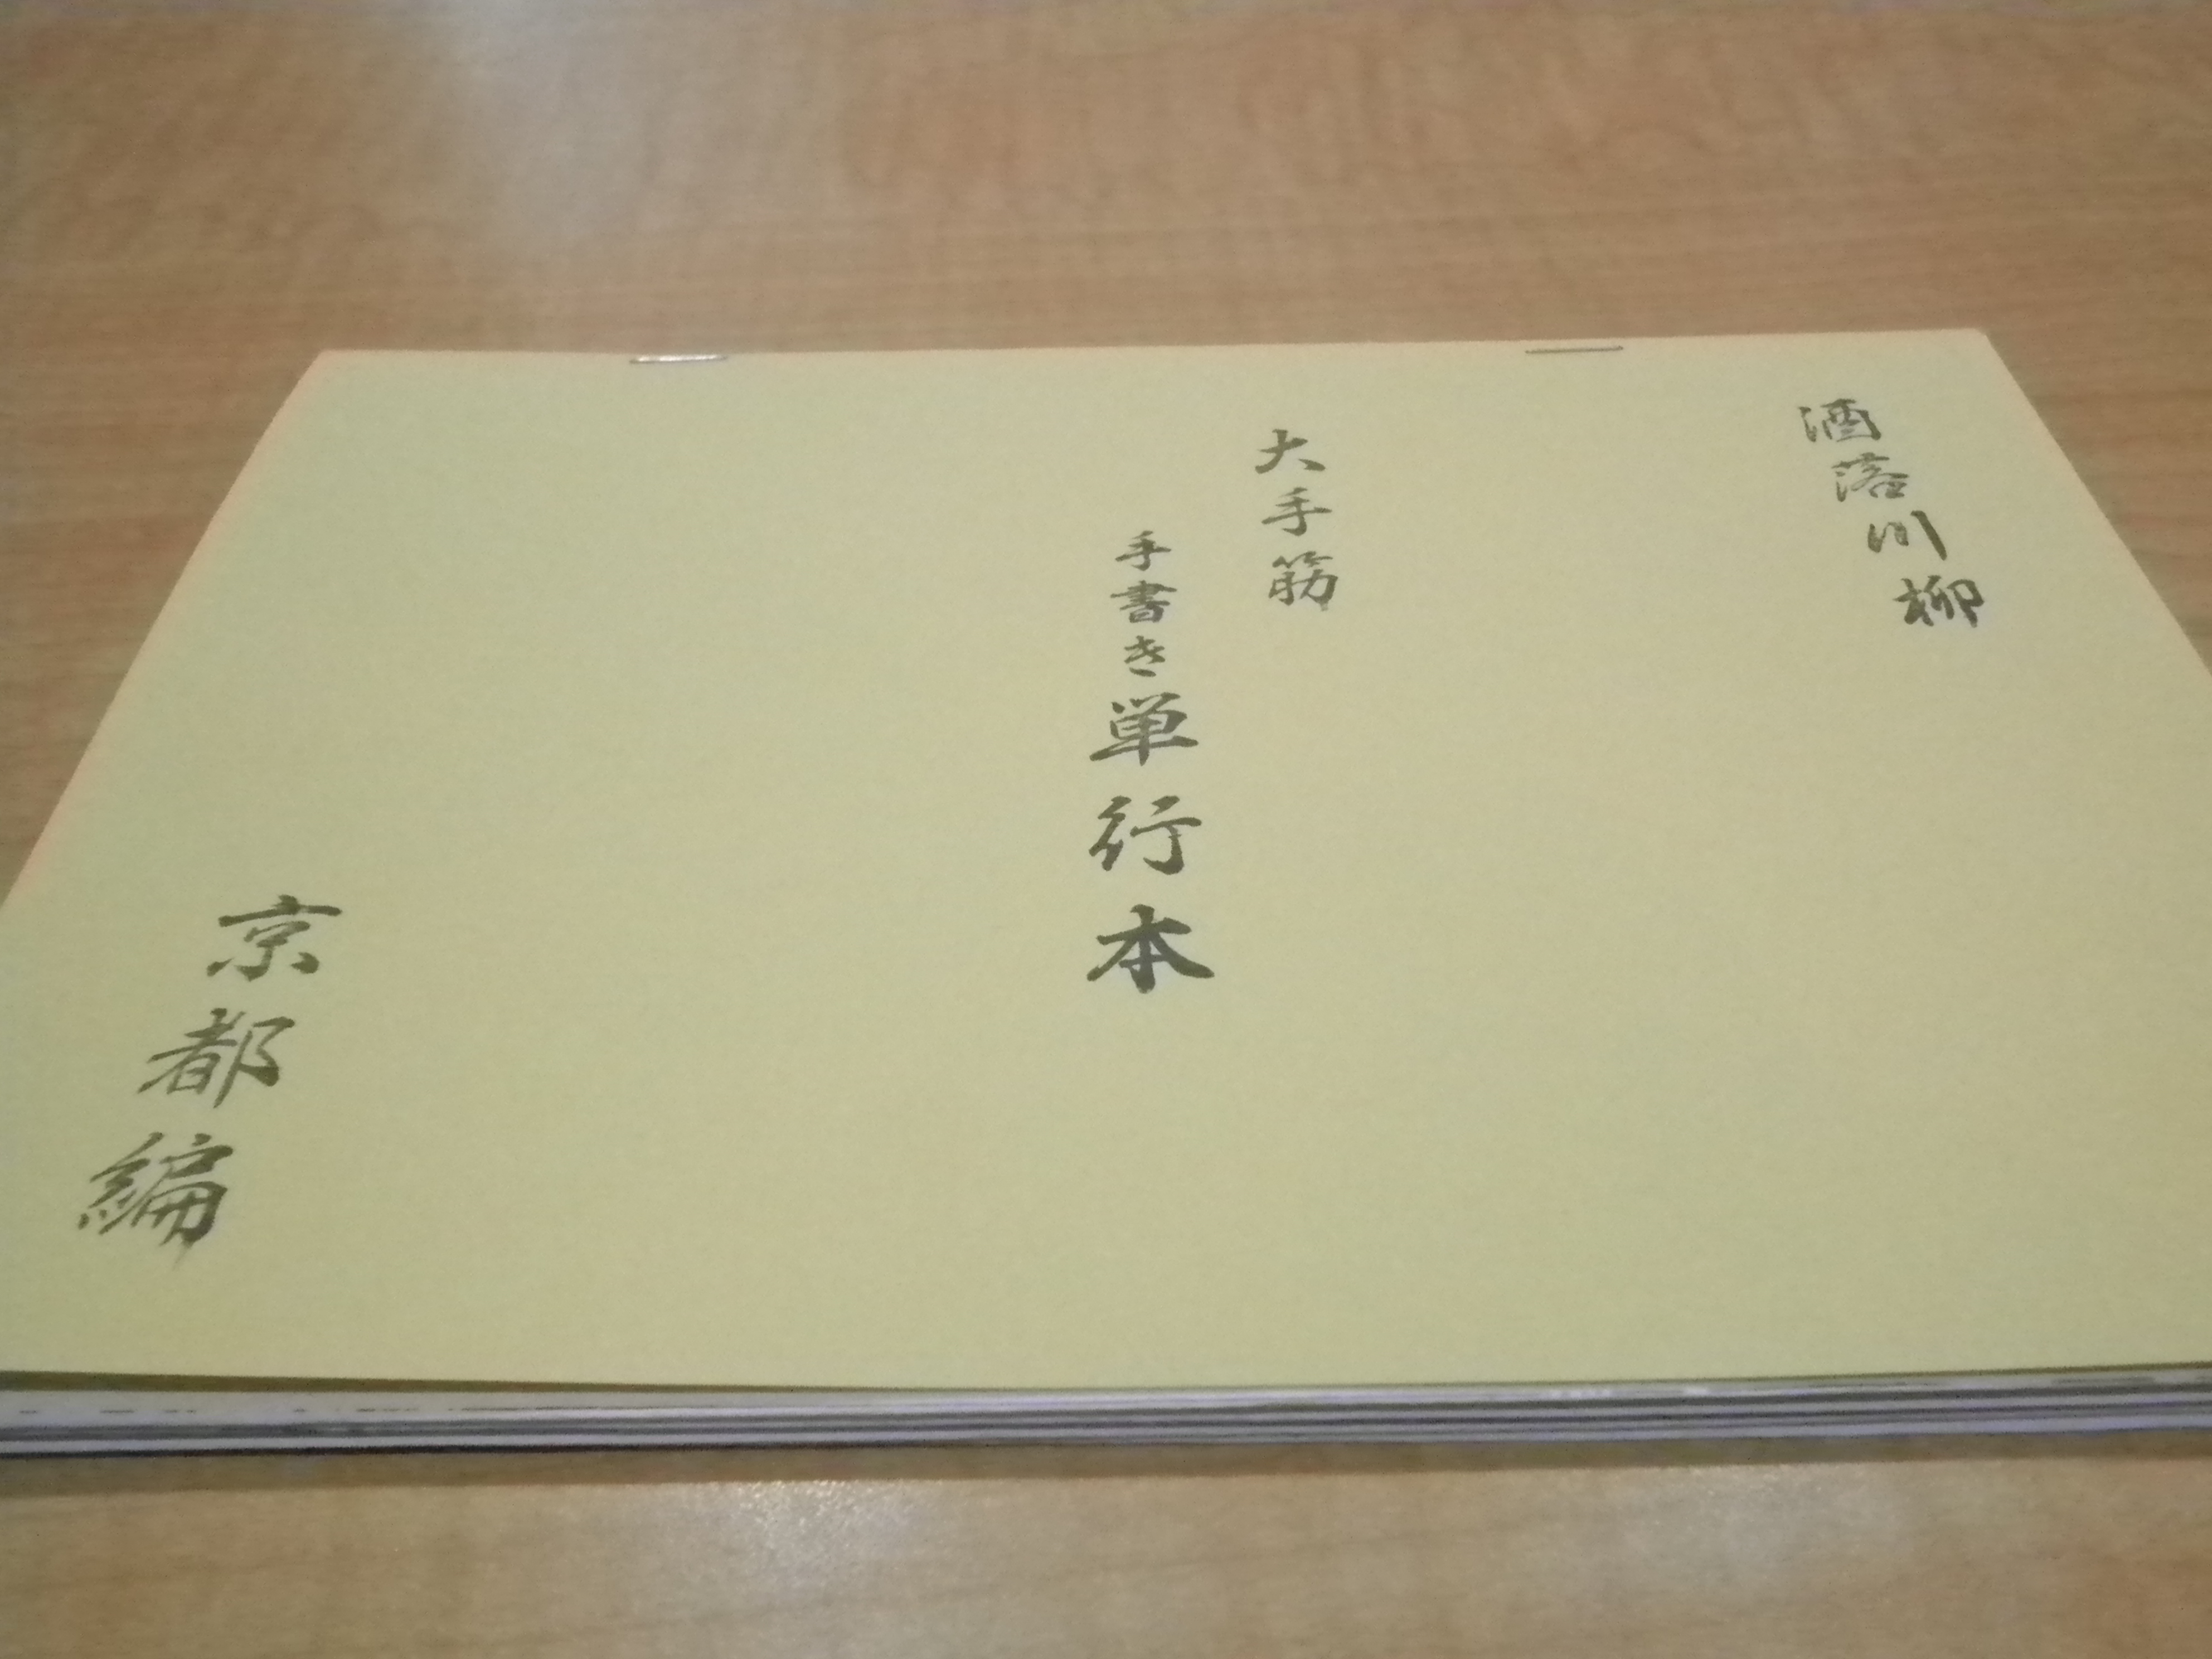 酒落川柳
大手筋
手書き単行本
京都編